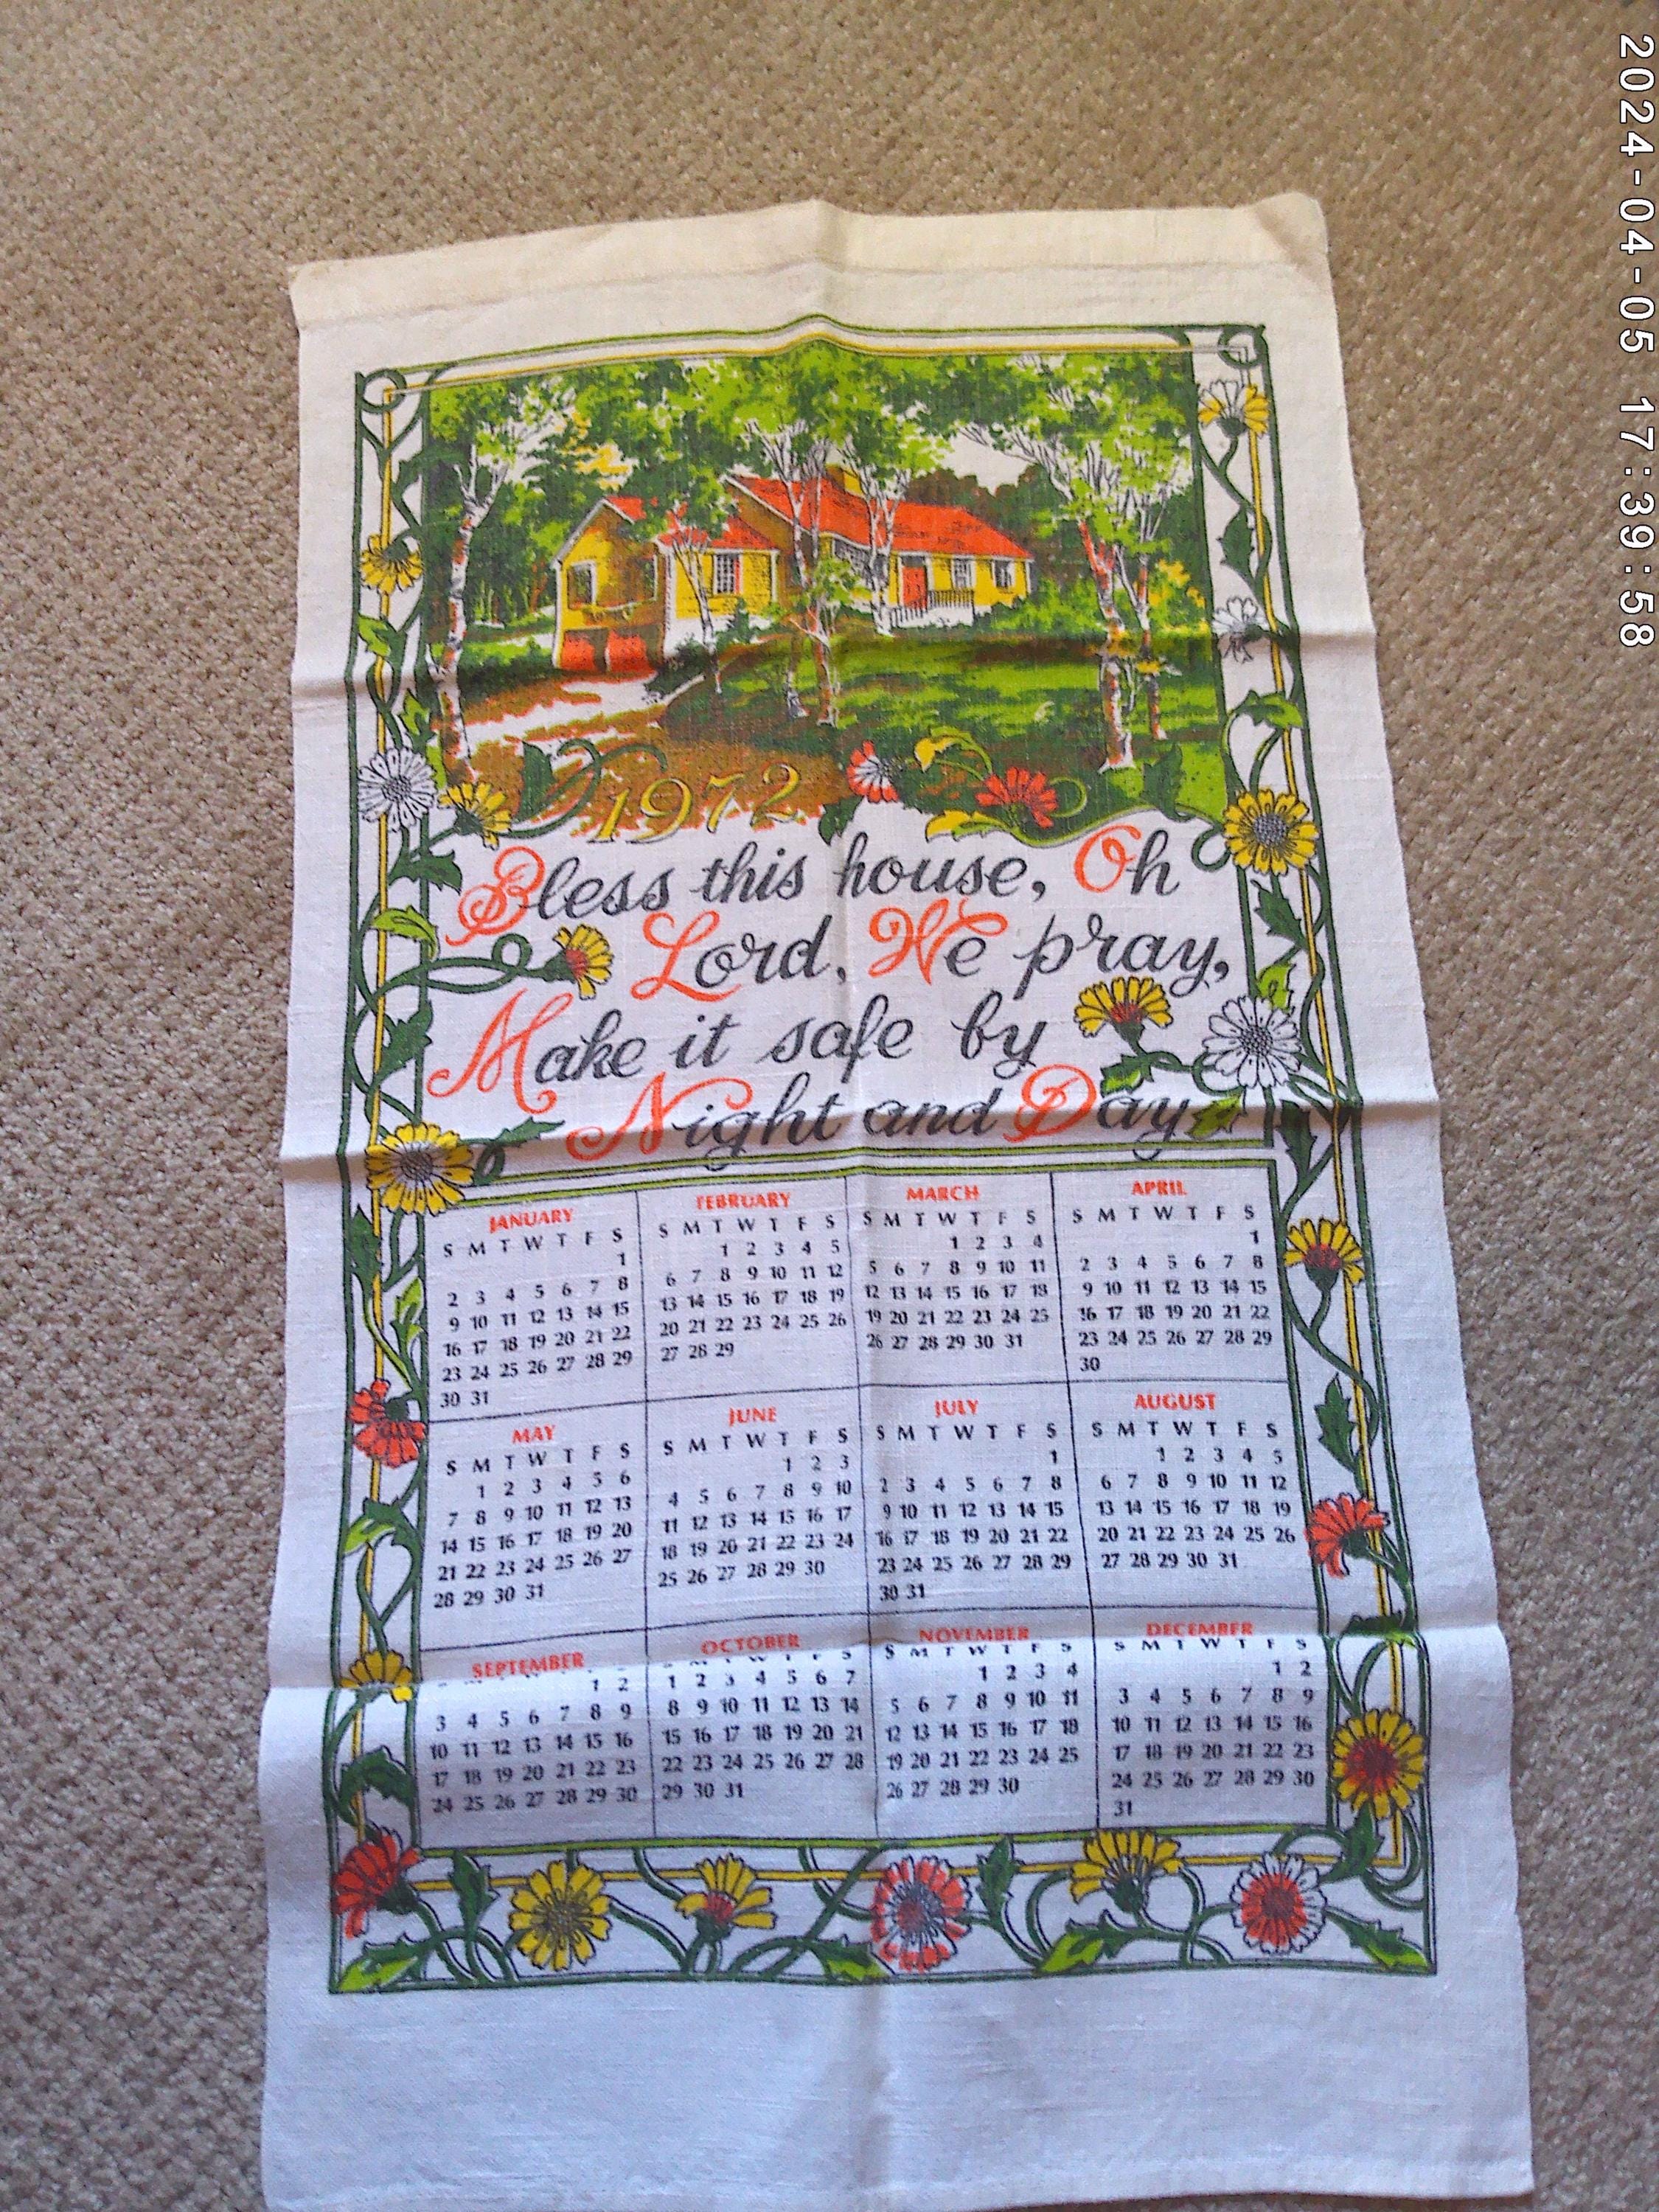 2024-04-05 17:39:58
1972
Bless this house, Oh
Lord, We pray,
Make it safe by
Night and Day
JANUARY
S M T W T F S
1
2 3 4 5 6 7 8
9 10 11 12 13 14 15
16 17 18 19 20 21 22
23 24 25 26 27 28 29
30 31
FEBRUARY
S M T W T F S
1 2 3 4 5
6 7 8 9 10 11 12
13 14 15 16 17 18 19
20 21 22 23 24 25 26
27 28 29
MARCH
S M T W T F S
1 2 3 4
5 6 7 8 9 10 11
12 13 14 15 16 17 18
19 20 21 22 23 24 25
26 27 28 29 30 31
APRIL
S M T W T F S
1
2 3 4 5 6 7 8
9 10 11 12 13 14 15
16 17 18 19 20 21 22
23 24 25 26 27 28 29
30
MAY
S M T W T F S
1 2 3 4 5 6
7 8 9 10 11 12 13
14 15 16 17 18 19 20
21 22 23 24 25 26 27
28 29 30 31
JUNE
S M T W T F S
1 2 3
4 5 6 7 8 9 10
11 12 13 14 15 16 17
18 19 20 21 22 23 24
25 26 27 28 29 30
JULY
S M T W T F S
1
2 3 4 5 6 7 8
9 10 11 12 13 14 15
16 17 18 19 20 21 22
23 24 25 26 27 28 29
30 31
AUGUST
S M T W T F S
1 2 3 4 5
6 7 8 9 10 11 12
13 14 15 16 17 18 19
20 21 22 23 24 25 26
27 28 29 30 31
SEPTEMBER
1 2
3 4 5 6 7 8 9
10 11 12 13 14 15 16
17 18 19 20 21 22 23
24 25 26 27 28 29 30
OCTOBER
1 2 3 4 5 6 7
8 9 10 11 12 13 14
15 16 17 18 19 20 21
22 23 24 25 26 27 28
29 30 31
NOVEMBER
S M T W T F S
1 2 3 4
5 6 7 8 9 10 11
12 13 14 15 16 17 18
19 20 21 22 23 24 25
26 27 28 29 30
DECEMBER
S M T W T F S
1 2
3 4 5 6 7 8 9
10 11 12 13 14 15 16
17 18 19 20 21 22 23
24 25 26 27 28 29 30
31